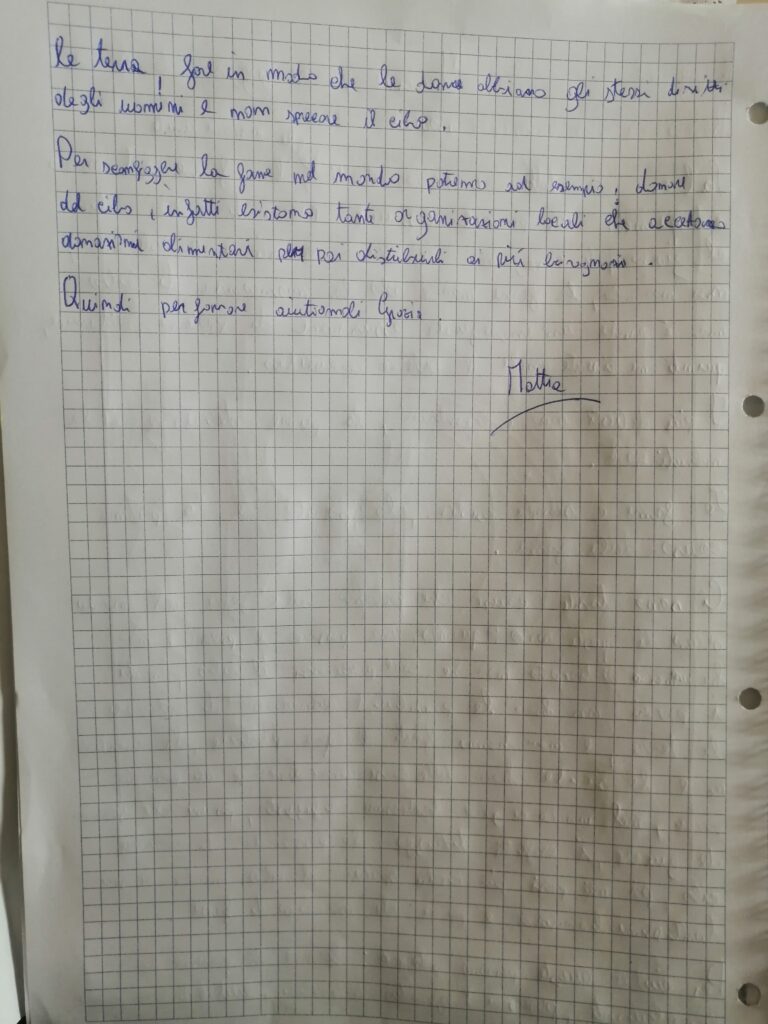 le terra, far in modo che le donne abbiano gli stessi diritti
degli uomini e non sprecare il cibo.
Per sconfiggere la fame nel mondo potremo ad esempio, donare
del cibo, infatti esistono tante organizzazioni locali che accettano
donazioni alimentari per poi distribuirli ai più bisognosi.
Quindi per favore aiutiamoli Grazie.
Mattia